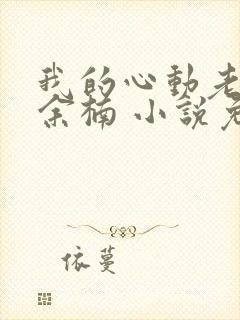 我的心動老
余楠 小說免
依蔓